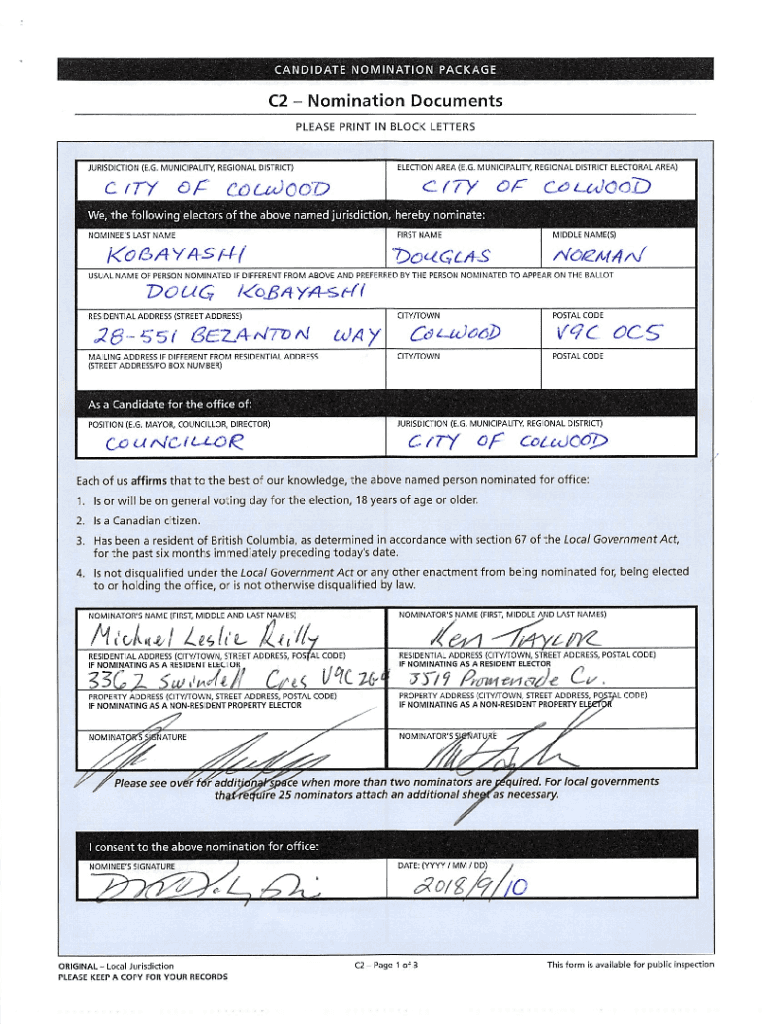 CANDIDATE NOMINATION PACKAGE
C2 – Nomination Documents
PLEASE PRINT IN BLOCK LETTERS
JURISDICTION (E.G. MUNICIPALITY, REGIONAL DISTRICT) ELECTION AREA (E.G. MUNICIPALITY, REGIONAL DISTRICT ELECTORAL AREA)
CITY OF COLWOOD CITY OF COLWOOD
We, the following electors of the above named jurisdiction, hereby nominate:
NOMINEE'S LAST NAME FIRST NAME MIDDLE NAME(S)
KOBAYASHI DOUGLAS NORMAN
USUAL NAME OF PERSON NOMINATED IF DIFFERENT FROM ABOVE AND PREFERRED BY THE PERSON NOMINATED TO APPEAR ON THE BALLOT
DOUG KOBAYASHI
RESIDENTIAL ADDRESS (STREET ADDRESS) CITY/TOWN POSTAL CODE
28-551 BEZANTON WAY COLWOOD V9C 0C5
MAILING ADDRESS IF DIFFERENT FROM RESIDENTIAL ADDRESS CITY/TOWN POSTAL CODE
(STREET ADDRESS/PO BOX NUMBER)
As a Candidate for the office of:
POSITION (E.G. MAYOR, COUNCILLOR, DIRECTOR) JURISDICTION (E.G. MUNICIPALITY, REGIONAL DISTRICT)
COUNCILLOR CITY OF COLWOOD
Each of us affirms that to the best of our knowledge, the above named person nominated for office:
1. Is or will be on general voting day for the election, 18 years of age or older.
2. Is a Canadian citizen.
3. Has been a resident of British Columbia, as determined in accordance with section 67 of the Local Government Act,
for the past six months immediately preceding today's date.
4. Is not disqualified under the Local Government Act or any other enactment from being nominated for, being elected
to or holding the office, or is not otherwise disqualified by law.
NOMINATOR'S NAME (FIRST, MIDDLE AND LAST NAMES) NOMINATOR'S NAME (FIRST, MIDDLE AND LAST NAMES)
Michael Leslie Reilly Ken TAYLOR
RESIDENTIAL ADDRESS (CITY/TOWN, STREET ADDRESS, POSTAL CODE) RESIDENTIAL ADDRESS (CITY/TOWN, STREET ADDRESS, POSTAL CODE)
IF NOMINATING AS A RESIDENT ELECTOR IF NOMINATING AS A RESIDENT ELECTOR
3362 Swindell Cres V9C 3519 Promenade Cr.
PROPERTY ADDRESS (CITY/TOWN, STREET ADDRESS, POSTAL CODE) PROPERTY ADDRESS (CITY/TOWN, STREET ADDRESS, POSTAL CODE)
IF NOMINATING AS A NON-RESIDENT PROPERTY ELECTOR IF NOMINATING AS A NON-RESIDENT PROPERTY ELECTOR
NOMINATOR'S SIGNATURE NOMINATOR'S SIGNATURE
Please see over for additional space when more than two nominators are required. For local governments
that require 25 nominators attach an additional sheet as necessary.
I consent to the above nomination for office:
NOMINEE'S SIGNATURE DATE: (YYYY / MM / DD)
2018/9/10
ORIGINAL – Local Jurisdiction C2 – Page 1 of 3 This form is available for public inspection
PLEASE KEEP A COPY FOR YOUR RECORDS